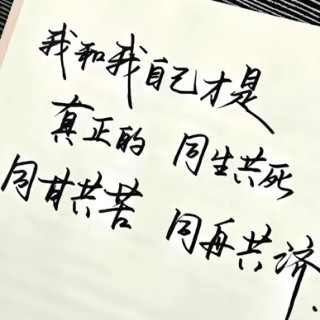 我和我自己才是
真正的 同生共死
同甘共苦 同舟共济.